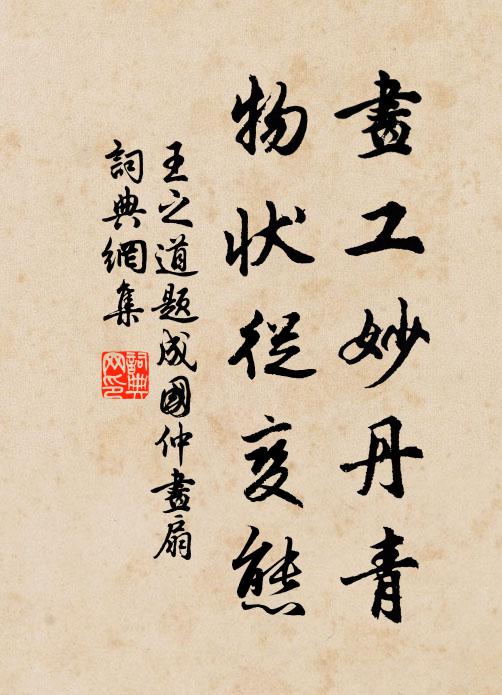 畫工妙丹青
物狀從變態
王之道題成國仲畫扇
詞典網集
詞典
网印